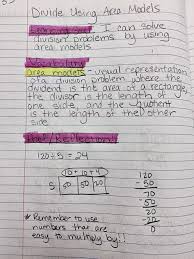 Divide Using Area Models
I can solve
division problems by using
area models.
area models - visual representation
of a division problem where the
dividend is the area of a rectangle,
the divisor is the length of
one side, and the quotient
is the length of the other
side
120÷5 = 24
10+10+4
5 50 50 20
120
-50
70
-50
20
-20
0
* Remember to use
numbers that are
easy to multiply by!!